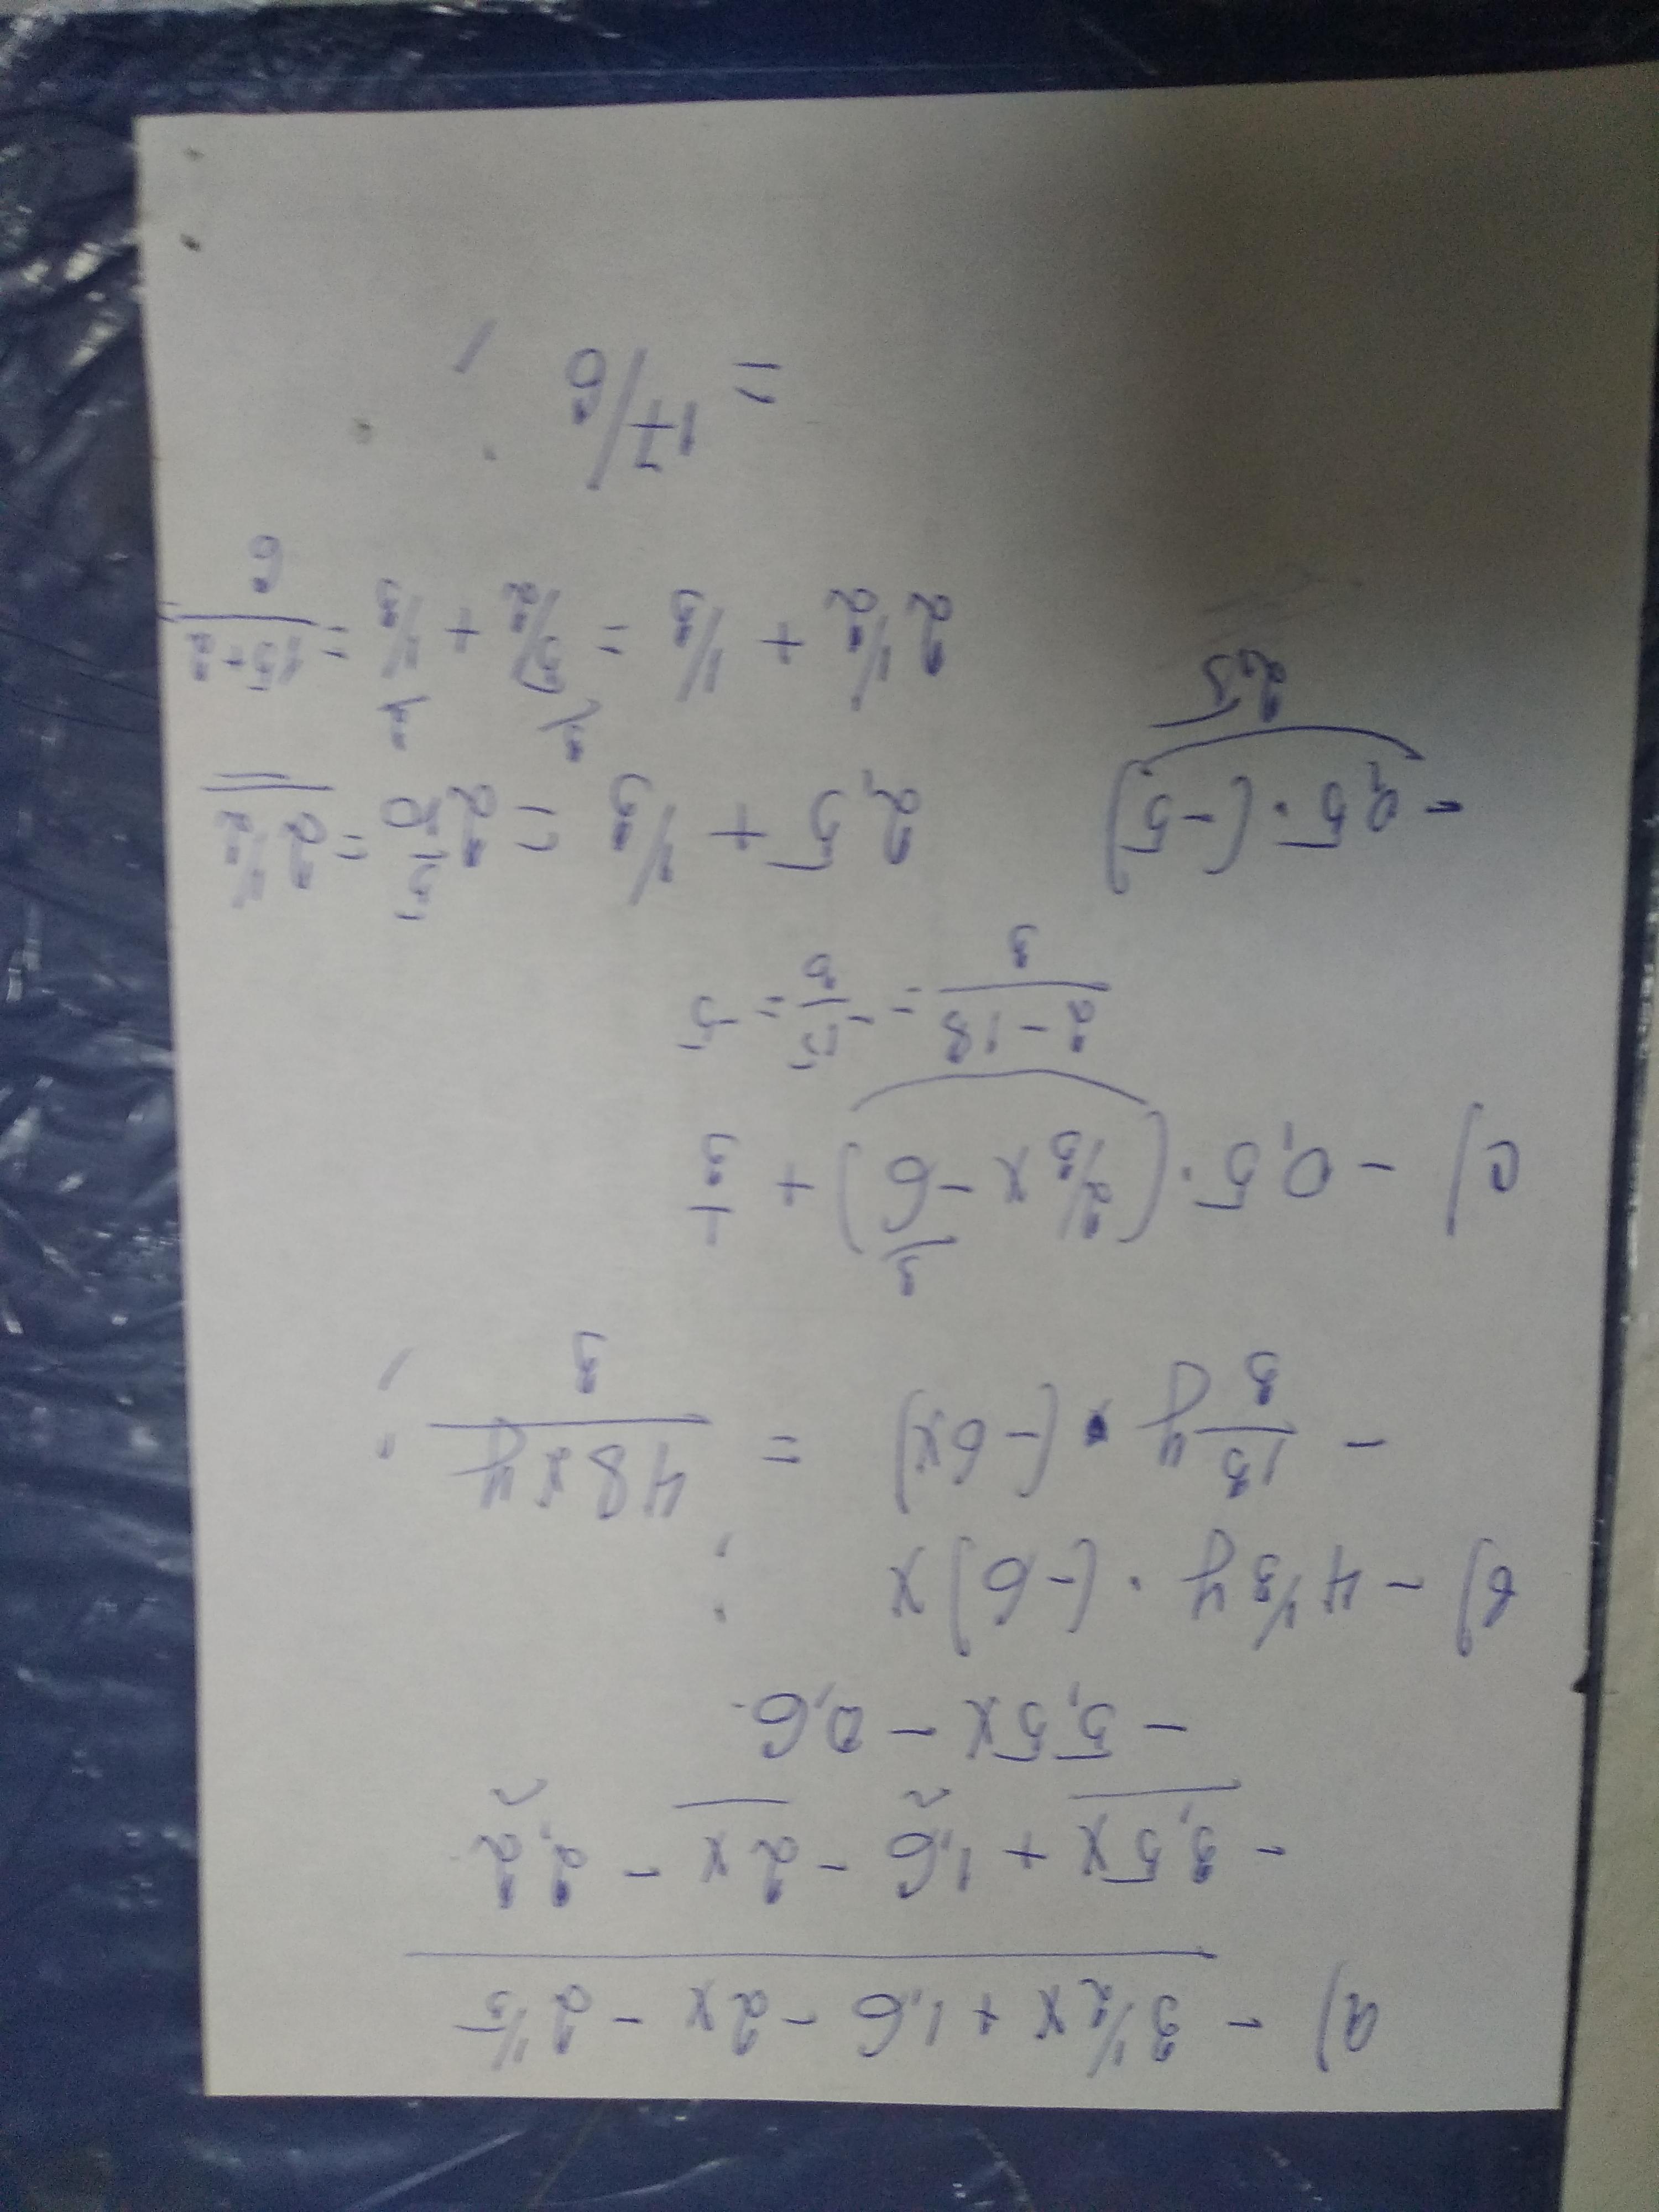 a) - 3 1/2 x + 1,6 - 2x - 2 1/5
- 3,5x + 1,6 - 2x - 2,2
- 5,5x - 0,6
b) - 4 1/3 y · (-6)x ;
- 13/3 y · (-6x) = 48xy/3 ;
c) - 0,5 · (2/3 x - 6) + 1/3
3
2 - 18 / 3 = - 15/3 = 5
- 0,5 · (-5) 2,5 + 1/3 = 2 5/10 = 2 1/2
2,5
2 1/2 + 1/3 = 5/2 + 1/3 = 15 + 2 / 6
= 17/6